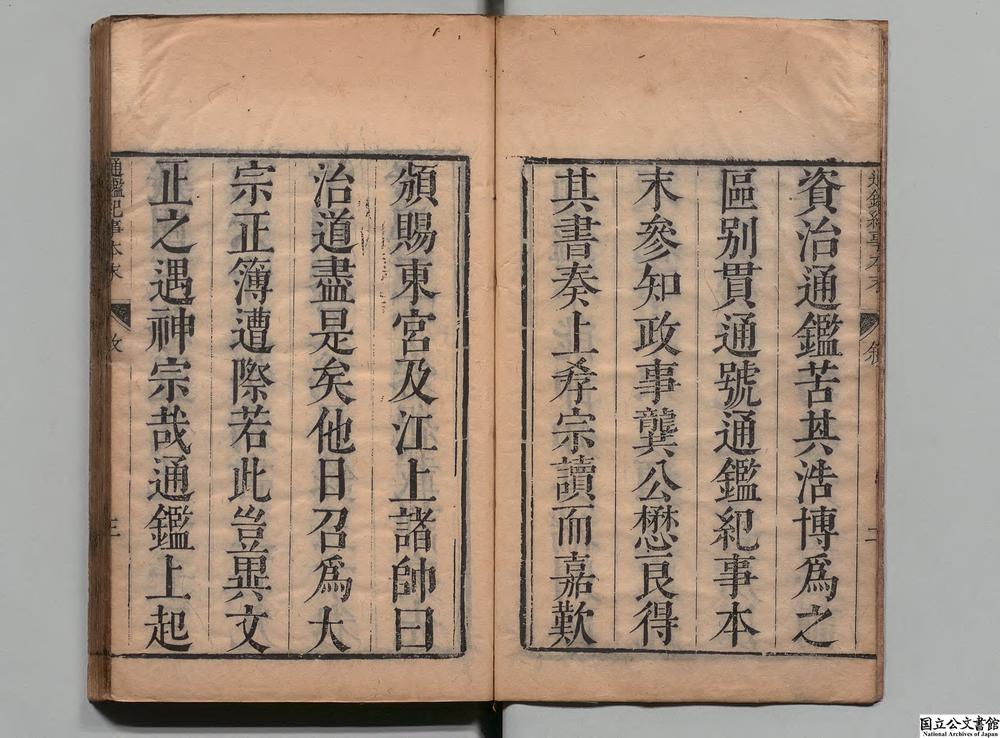 資治通鑑苦其浩博爲之
區别貫通號通鑑紀事本
末參知政事龔公懋良得
其書奏上孝宗讀而嘉歎
頒賜東宮及江上諸帥曰
治道盡是矣他日召爲大
宗正簿遭際若此豈異文
正之遇神宗哉通鑑上起
通鑑紀事本末
三
国立公文書館
National Archives of Japan